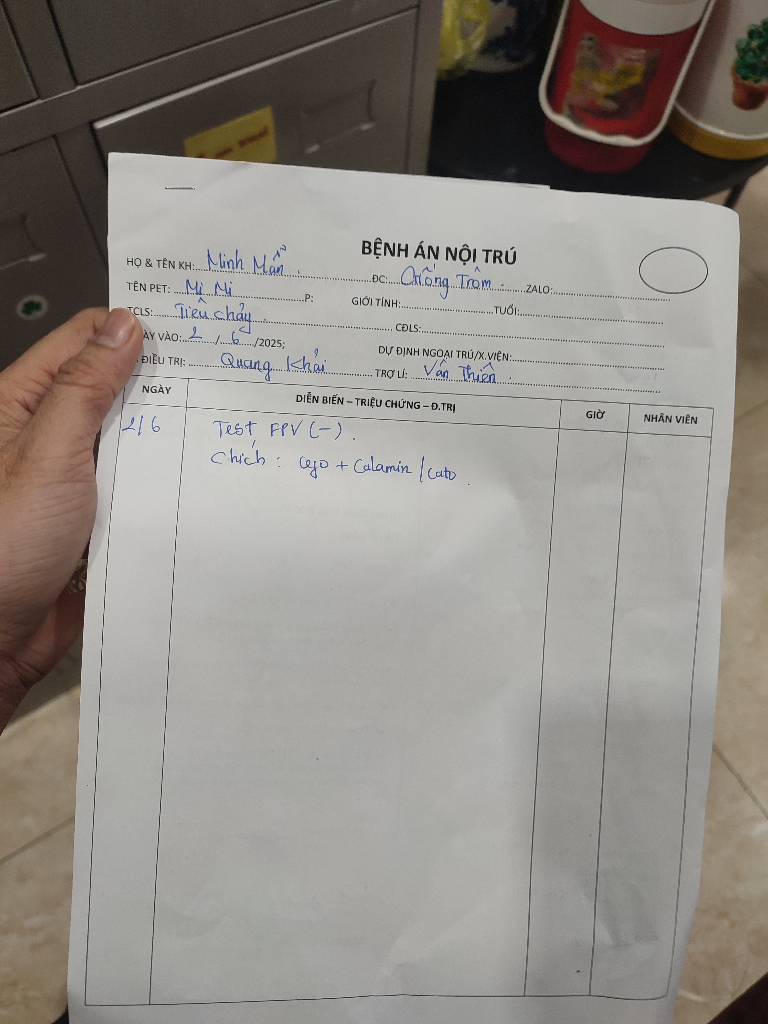 BỆNH ÁN NỘI TRÚ
HỌ & TÊN KH: Minh Mẩn. ĐC: Chống Trôm. ZALO:
TÊN PET: Mi Mi P: GIỚI TÍNH: TUỔI:
TCLS: Tiêu chảy. CĐLS:
ÀY VÀO: 2 / 6 /2025; DỰ ĐỊNH NGOẠI TRÚ/X.VIỆN:
ĐIỀU TRỊ: Quang Khải TRỢ LÍ: Văn Thiên.
NGÀY DIỄN BIẾN – TRIỆU CHỨNG – Đ.TRỊ GIỜ NHÂN VIÊN
2/6 Test FPV (-).
Chích: + Calamin / Cato.